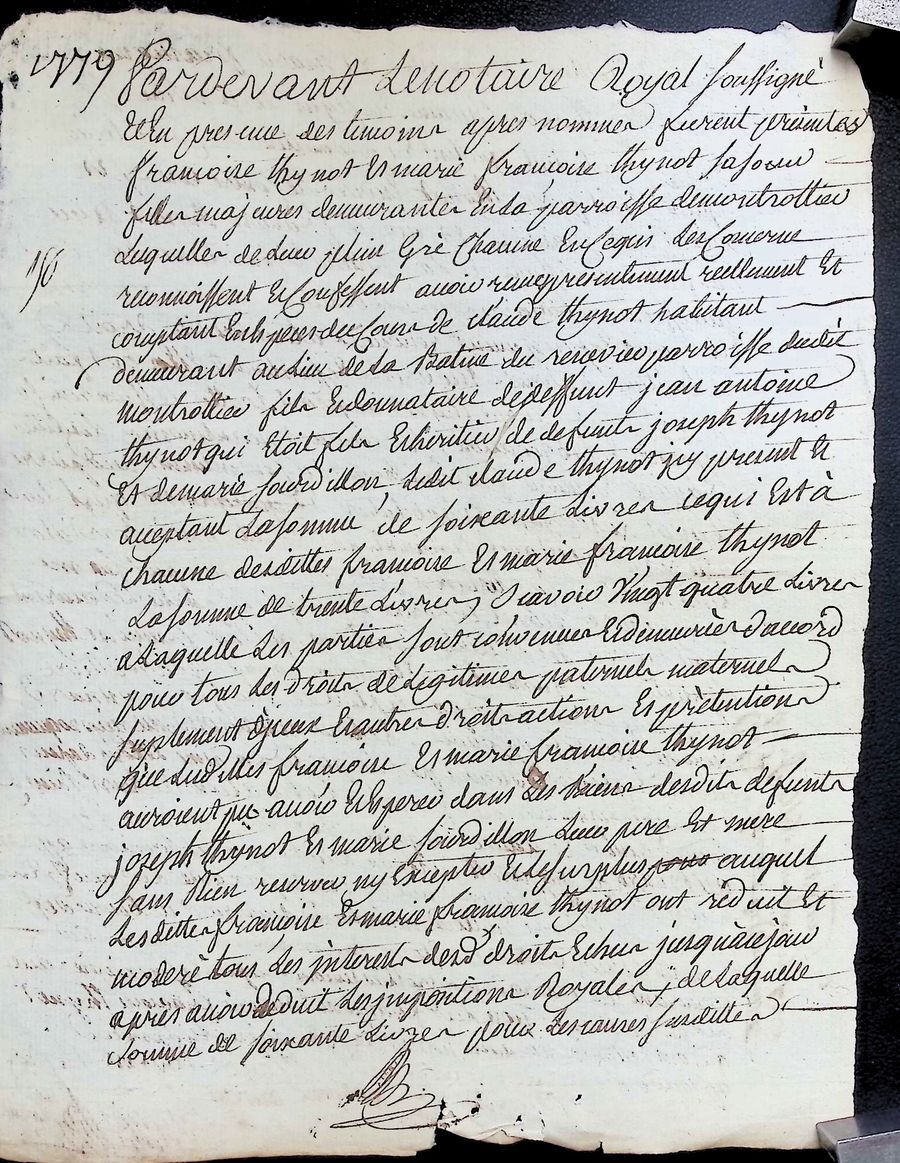 1779 Pardevant Le notaire Royal soussigné
Et En presence des temoins apres nommes furent présentes
francoise thynot Et marie francoise thynot sa soeur
filles majeures demeurantes En La parroisse de montrottier
Lesquelles de Leur plein Gré Chacune En Ce qui Les Concerne
reconnoissent Et Confessent avoir reçu presentement reellement Et
comptant En Especes du Cour de claude thynot habitant
demeurant au Lieu de La Batine du parroisse dudit
montrottier fils Et donnataire de deffunt jean antoine
thynot qui Etoit fils Et heritier de defunts joseph thynot
Et de marie sourdillon, Ledit claude thynot jcy present Et
acceptant La somme de soixante Livres ce qui Est à
chacune desdittes francoise Et marie francoise thynot
La somme de trente Livres, Scavoir Vingt quatre Livres
a Laquelle Les parties sont convenues Et demeurées d'accord
pour tous Les droits de Legitimes paternels maternels
suplement d'jceux Et autres droits actions Et prètentions
que Lesdittes francoise Et marie francoise thynot
auroient pu avoir Et Esperer dans Les Biens desdits defunts
joseph thynot Et marie sourdillon Leur pere Et mere
sans Rien reserver ny Excepter Et Le surplus auquel
Lesdittes francoise Et marie francoise thynot ont reduit Et
moderé tous Les jnterests desd droits Echus jusqu'à ce jour
après avoir deduit Les jmpositions Royales, de Laquelle
somme de soixante Livres pour Les causes susdittes